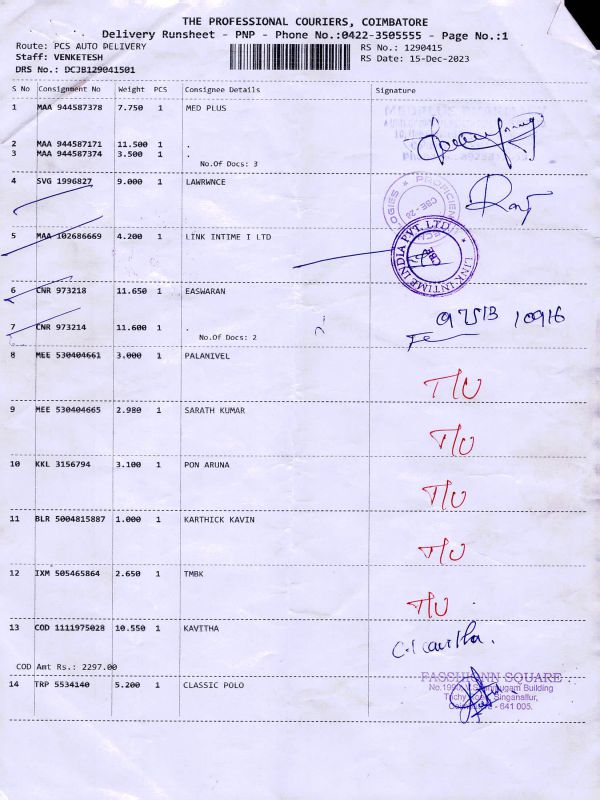 THE PROFESSIONAL COURIERS, COIMBATORE
Delivery Runsheet - PNP - Phone No.:0422-3505555 - Page No.:1
Route: PCS AUTO DELIVERY RS No.: 1290415
Staff: VENKETESH RS Date: 15-Dec-2023
DRS No.: DCJB129041501
S No Consignment No Weight PCS Consignee Details Signature
1 MAA 944587378 7.750 1 MED PLUS
2 MAA 944587171 11.500 1 .
3 MAA 944587374 3.500 1 .
No.Of Docs: 3
4 SVG 1996827 9.000 1 LAWRWNCE
5 MAA 102686669 4.200 1 LINK INTIME I LTD
LINK INTIME INDIA PVT. LTD. CBE
6 CNR 973218 11.650 1 EASWARAN
7 CNR 973214 11.600 1 .
No.Of Docs: 2
97513 10916
8 MEE 530404661 3.000 1 PALANIVEL
T/U
9 MEE 530404665 2.980 1 SARATH KUMAR
T/U
10 KKL 3156794 3.100 1 PON ARUNA
T/U
11 BLR 5004815887 1.000 1 KARTHICK KAVIN
T/U
12 IXM 505465864 2.650 1 TMBK
T/U
13 COD 1111975028 10.550 1 KAVITHA
COD Amt Rs.: 2297.00
14 TRP 5534140 5.200 1 CLASSIC POLO
FASSHIONN SQUARE
Building
Singanallur,
- 641 005.